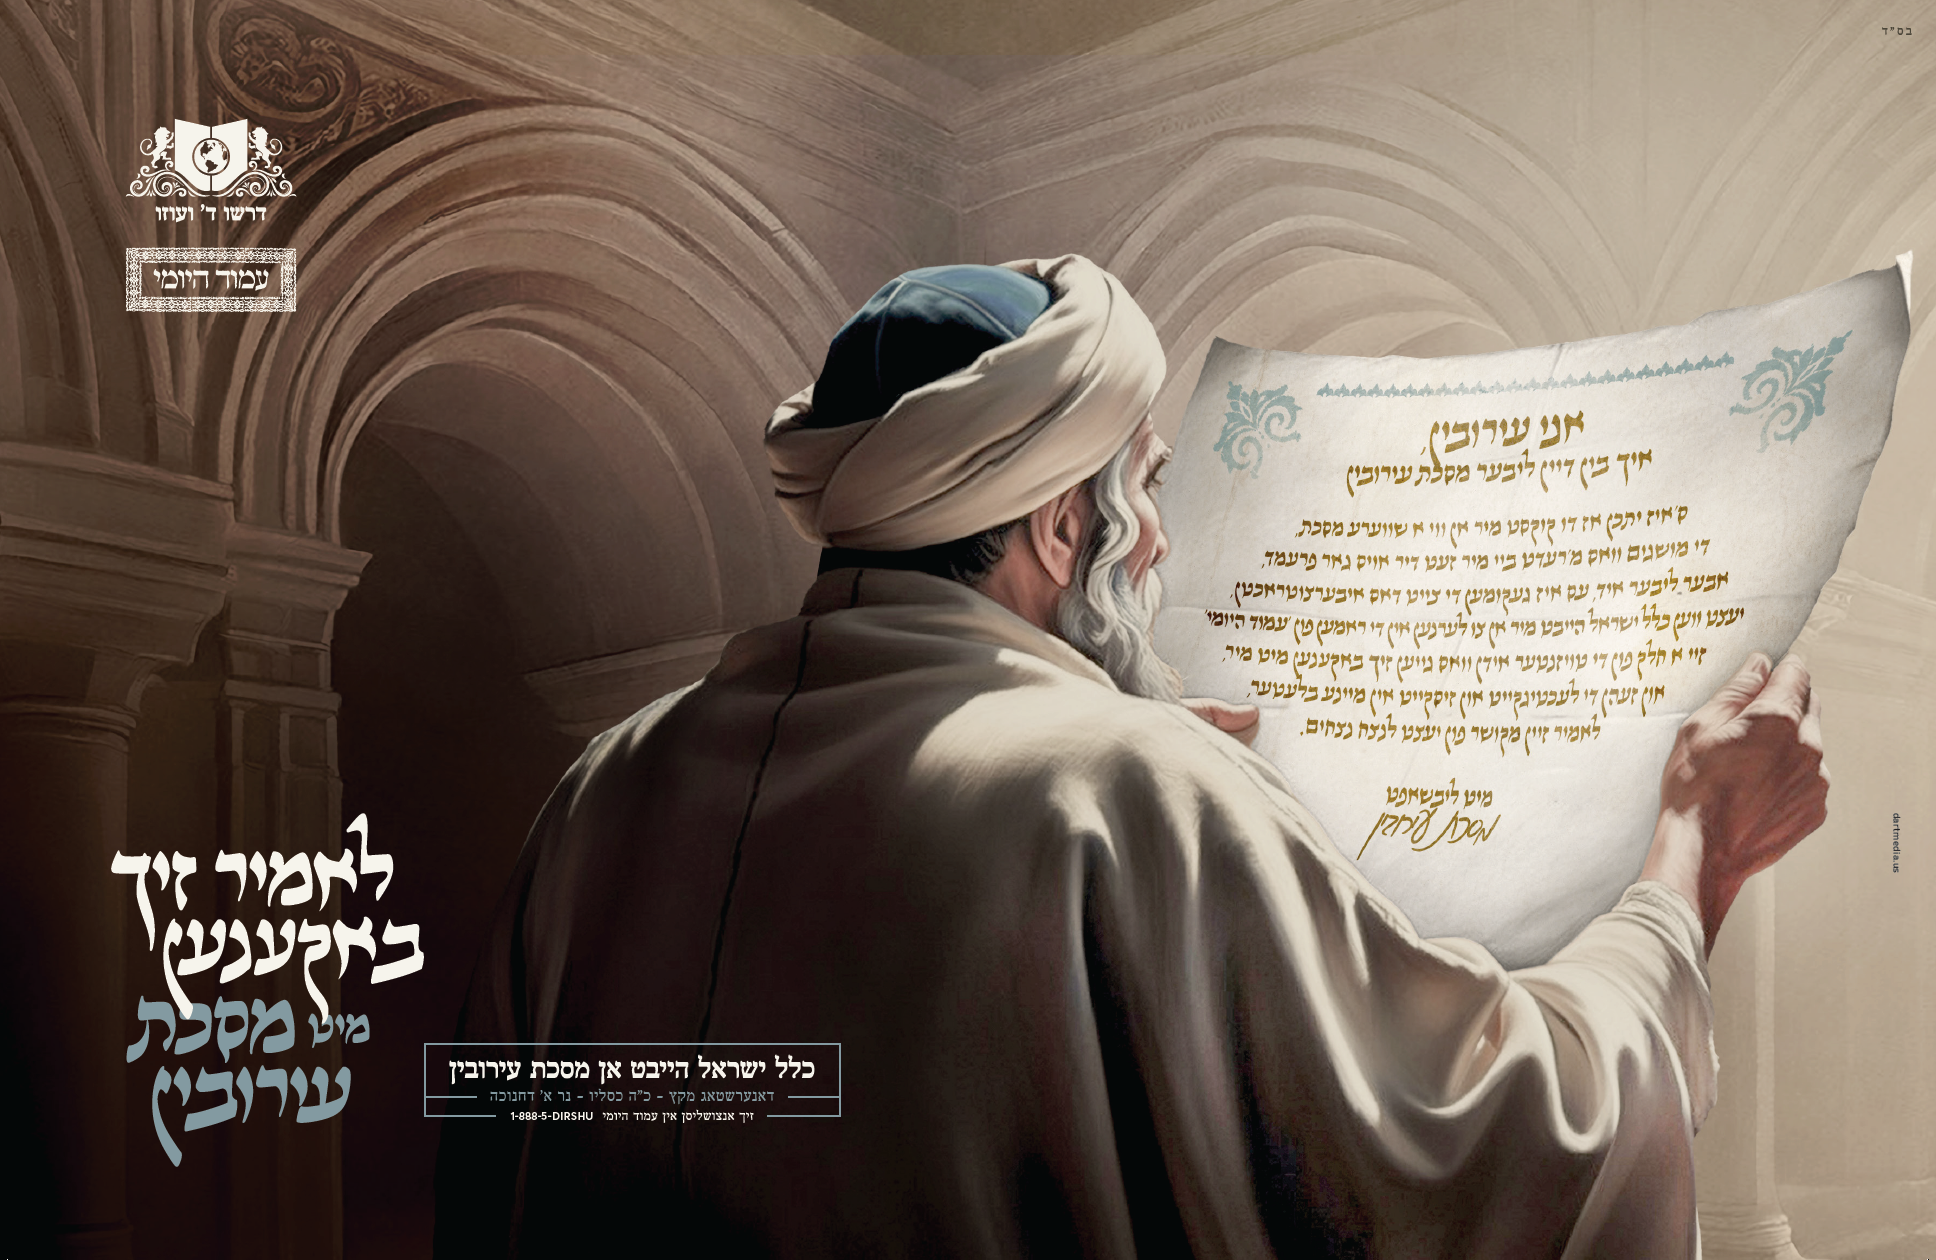 בס"ד
דרשו ד' ועוזו
עמוד היומי
אני עירובין,
איך בין דיין ליבער מסכת עירובין
ס'איז יתכן אז דו קוקסט מיר אן ווי א שווערע מסכת,
די מושגים וואס מ'רעדט ביי מיר זעט דיר אויס גאר פרעמד,
אבער ליבער איד, עס איז געקומען די צייט דאס איבערצוטראכטן,
יעצט ווען כלל ישראל הייבט מיר אן צו לערנען אין די ראמען פון 'עמוד היומי'
זיי א חלק פון די טויזנטער אידן וואס גייען זיך באקענען מיט מיר,
און זעהן די לעכטיגקייט און זיסקייט אין מיינע בלעטער,
לאמיר זיין מקושר פון יעצט לנצח נצחים.
מיט ליבשאפט
מסכת עירובין
לאמיר זיך
באקענען
מיט מסכת
עירובין
כלל ישראל הייבט אן מסכת עירובין
דאנערשטאג מקץ - כ"ה כסליו - נר א' דחנוכה
זיך אנצושליסן אין עמוד היומי 1-888-5-DIRSHU
dartmedia.us